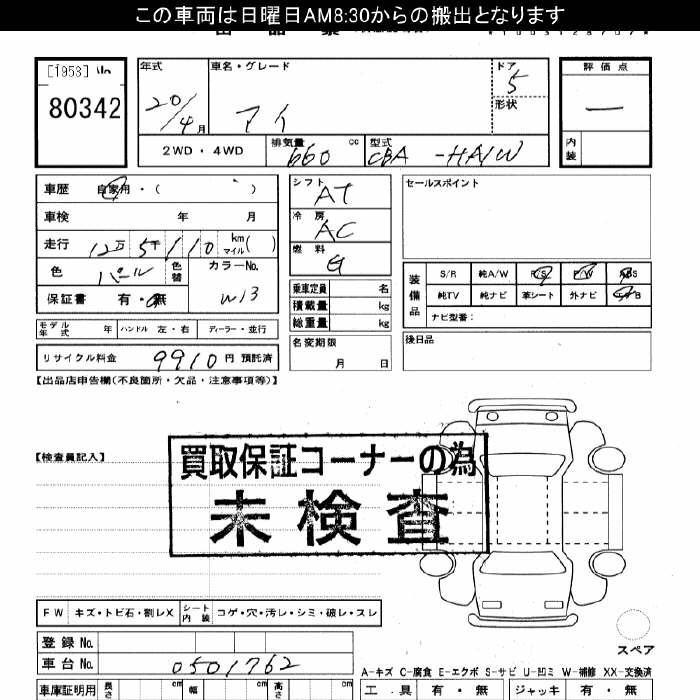 この車両は日曜日AM8:30からの搬出となります
[1953]
80342
年式 20/4月
車名・グレード アイ
ドア 5
形状
評価点 —
内装
2WD・4WD
排気量 660 cc
型式 CBA-HA1W
車歴 自家用・( )
車検 年 月
走行 12万5千110 km マイル( )
色 パール 色替 カラーNo. W13
保証書 有・無
モデル年式 年 ハンドル 左・右 ディーラー・並行
リサイクル料金 9910円 預託済
シフト AT
冷房 AC
燃料 G
乗車定員 名
積載量 kg
総重量 kg
名変期限 月 日
セールスポイント
装備品 S/R 純A/W P/S P/W ABS
純TV 純ナビ 革シート 外ナビ エアB
ナビ型番:
後日品
【出品店申告欄(不良箇所・欠品・注意事項等)】
【検査員記入】
買取保証コーナーの為
未検査
FW キズ・トビ石・割レX シート内装 コゲ・穴・汚レ・シミ・破レ・スレ
登録No.
車台No. 0501762
スペア
A-キズ C-腐食 E-エクボ S-サビ U-凹ミ W-補修 XX-交換済
車庫証明用 長さ cm 幅 cm 高さ cm
工具 有・無 ジャッキ 有・無